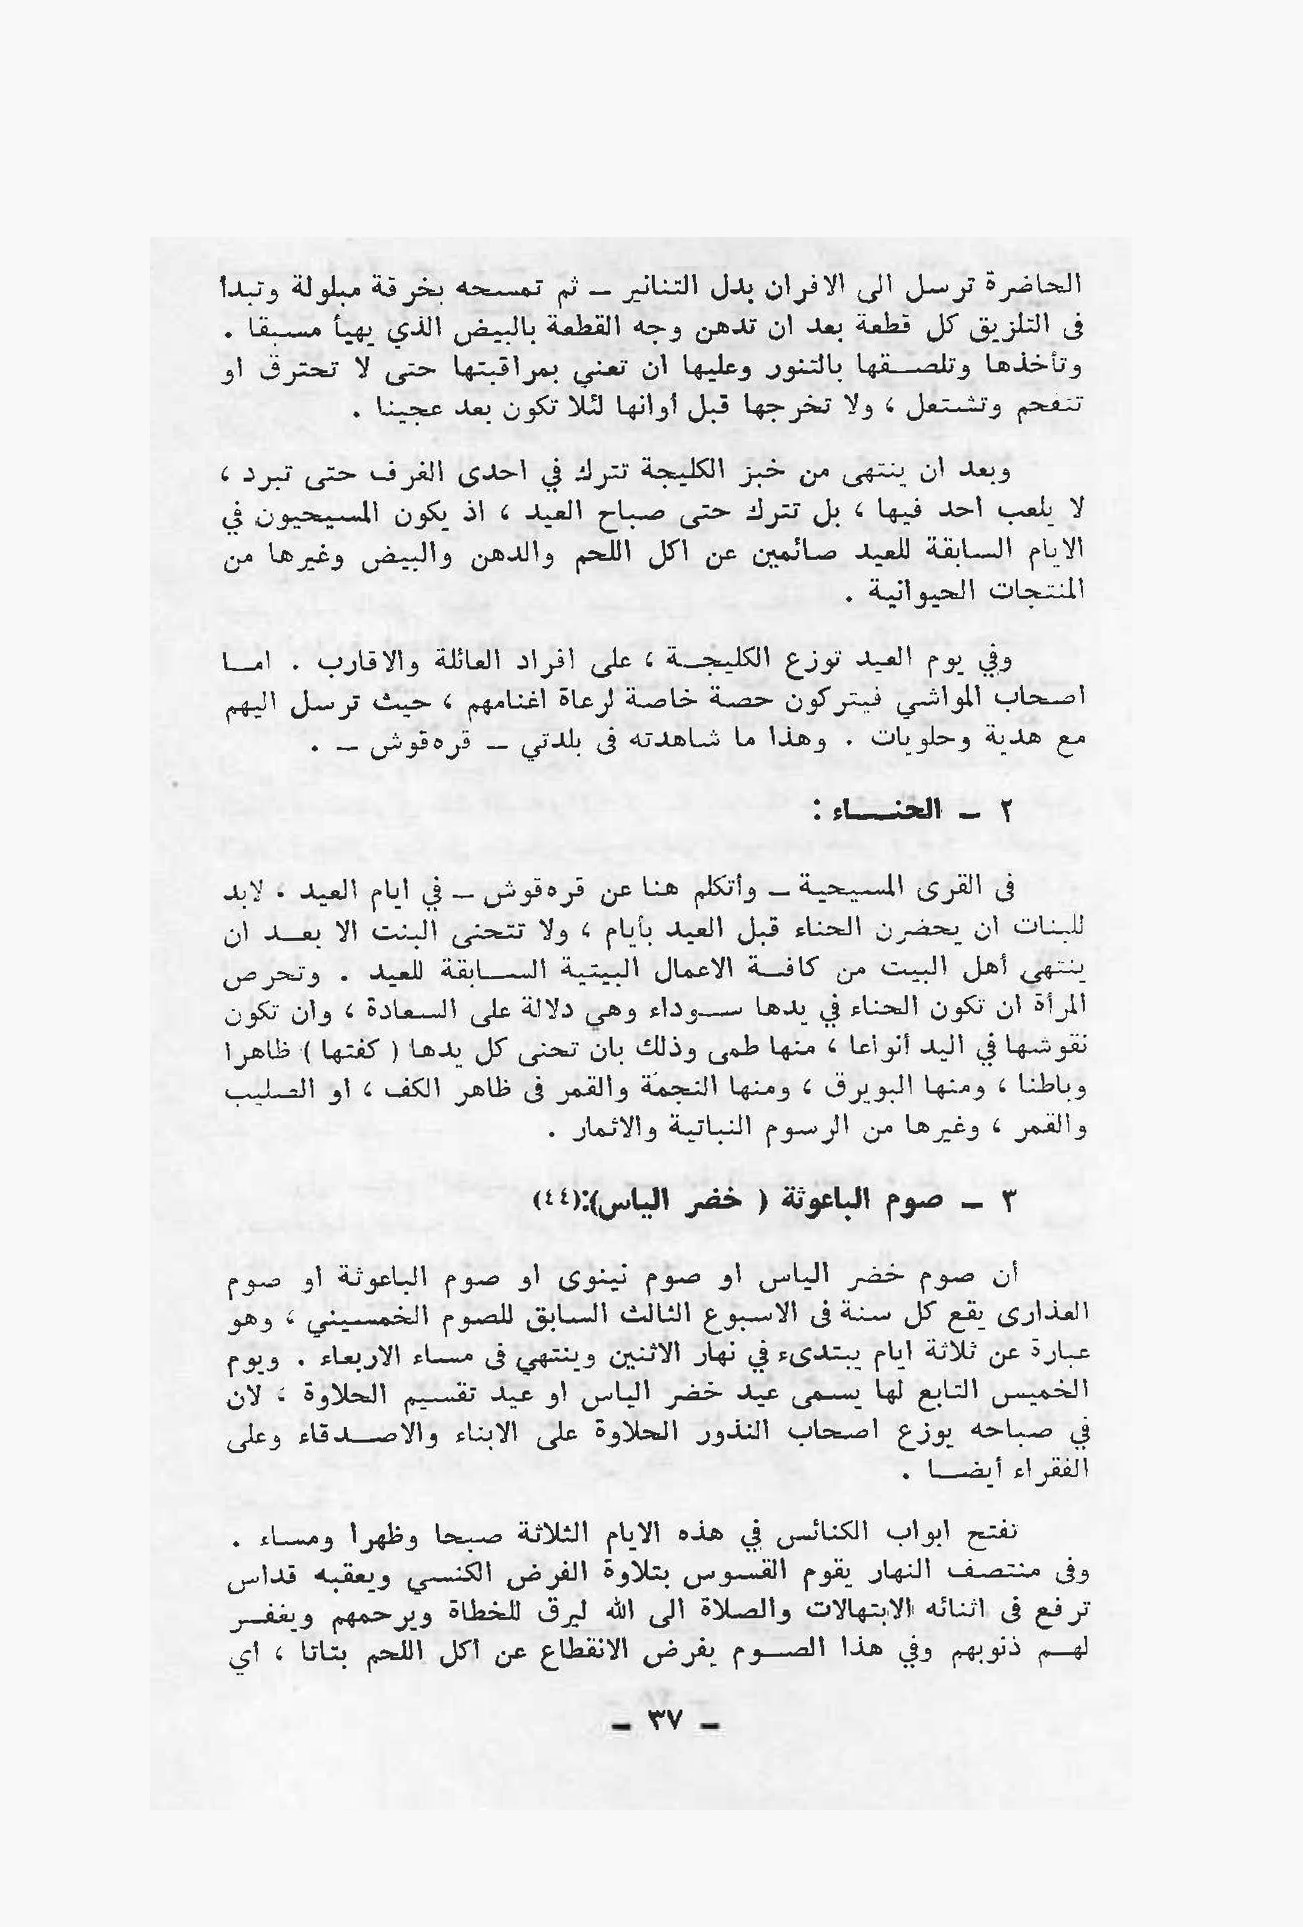 الحاضرة ترسل الى الافران بدل التنانير ـ ثم تمسحه بخرقة مبلولة وتبدأ
فى التلزيق كل قطعة بعد ان تدهن وجه القطعة بالبيض الذي يهيأ مسبقا .
وتأخذها وتلصقها بالتنور وعليها ان تعني بمراقبتها حتى لا تحترق او
تتفحم وتشتعل ، ولا تخرجها قبل أوانها لئلا تكون بعد عجينا .
وبعد ان ينتهى من خبز الكليجة تترك في احدى الغرف حتى تبرد ،
لا يلعب احد فيها ، بل تترك حتى صباح العيد ، اذ يكون المسيحيون في
الايام السابقة للعيد صائمين عن اكل اللحم والدهن والبيض وغيرها من
المنتجات الحيوانية .
وفي يوم العيد توزع الكليجة ، على افراد العائلة والاقارب . اما
اصحاب المواشي فيتركون حصة خاصة لرعاة اغنامهم ، حيث ترسل اليهم
مع هدية وحلويات . وهذا ما شاهدته فى بلدتي ـ قرهقوش ـ .
٢ ـ الحناء :
فى القرى المسيحية ـ وأتكلم هنا عن قرهقوش ـ في ايام العيد . لابد
للبنات ان يحضرن الحناء قبل العيد بأيام ، ولا تتحنى البنت الا بعد ان
ينتهي أهل البيت من كافة الاعمال البيتية السابقة للعيد . وتحرص
المرأة ان تكون الحناء في يدها سوداء وهي دلالة على السعادة ، وان تكون
نقوشها في اليد أنواعا ، منها طمى وذلك بان تحنى كل يدها ( كفتها ) ظاهرا
وباطنا ، ومنها البويرق ، ومنها النجمة والقمر فى ظاهر الكف ، او الصليب
والقمر ، وغيرها من الرسوم النباتية والاثمار .
٣ ـ صوم الباعوثة ( خضر الياس):(٤٤)
أن صوم خضر الياس او صوم نينوى او صوم الباعوثة او صوم
العذارى يقع كل سنة فى الاسبوع الثالث السابق للصوم الخمسيني ، وهو
عبارة عن ثلاثة ايام يبتدىء في نهار الاثنين وينتهي فى مساء الاربعاء . ويوم
الخميس التابع لها يسمى عيد خضر الياس او عيد تقسيم الحلاوة ، لان
في صباحه يوزع اصحاب النذور الحلاوة على الابناء والاصدقاء وعلى
الفقراء أيضا .
تفتح ابواب الكنائس في هذه الايام الثلاثة صبحا وظهرا ومساء .
وفى منتصف النهار يقوم القسوس بتلاوة الفرض الكنسي ويعقبه قداس
ترفع فى اثنائه الابتهالات والصلاة الى الله ليرق للخطاة ويرحمهم ويغفر
لهم ذنوبهم وفي هذا الصوم يفرض الانقطاع عن اكل اللحم بتاتا ، اي
ـ ٣٧ ـ